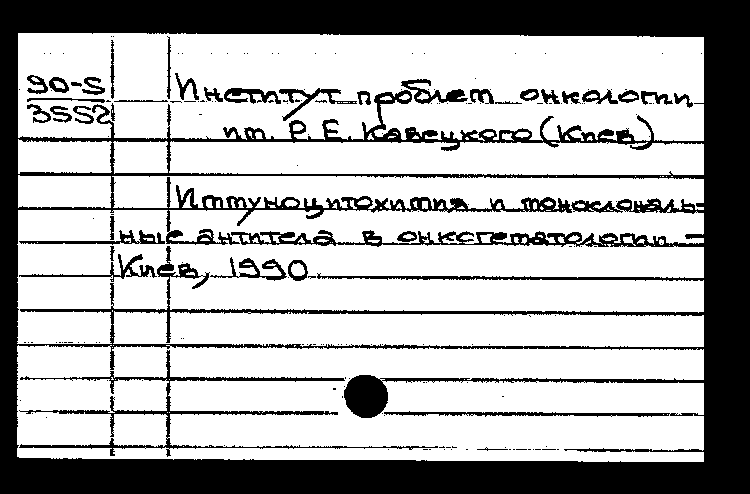 90-5
3552
Институт проблем онкологии
им. Р. Е. Кавецкого (Киев)
Иммуноцитохимия и моноклональ-
ные антитела в онкогематологии –
Киев, 1990